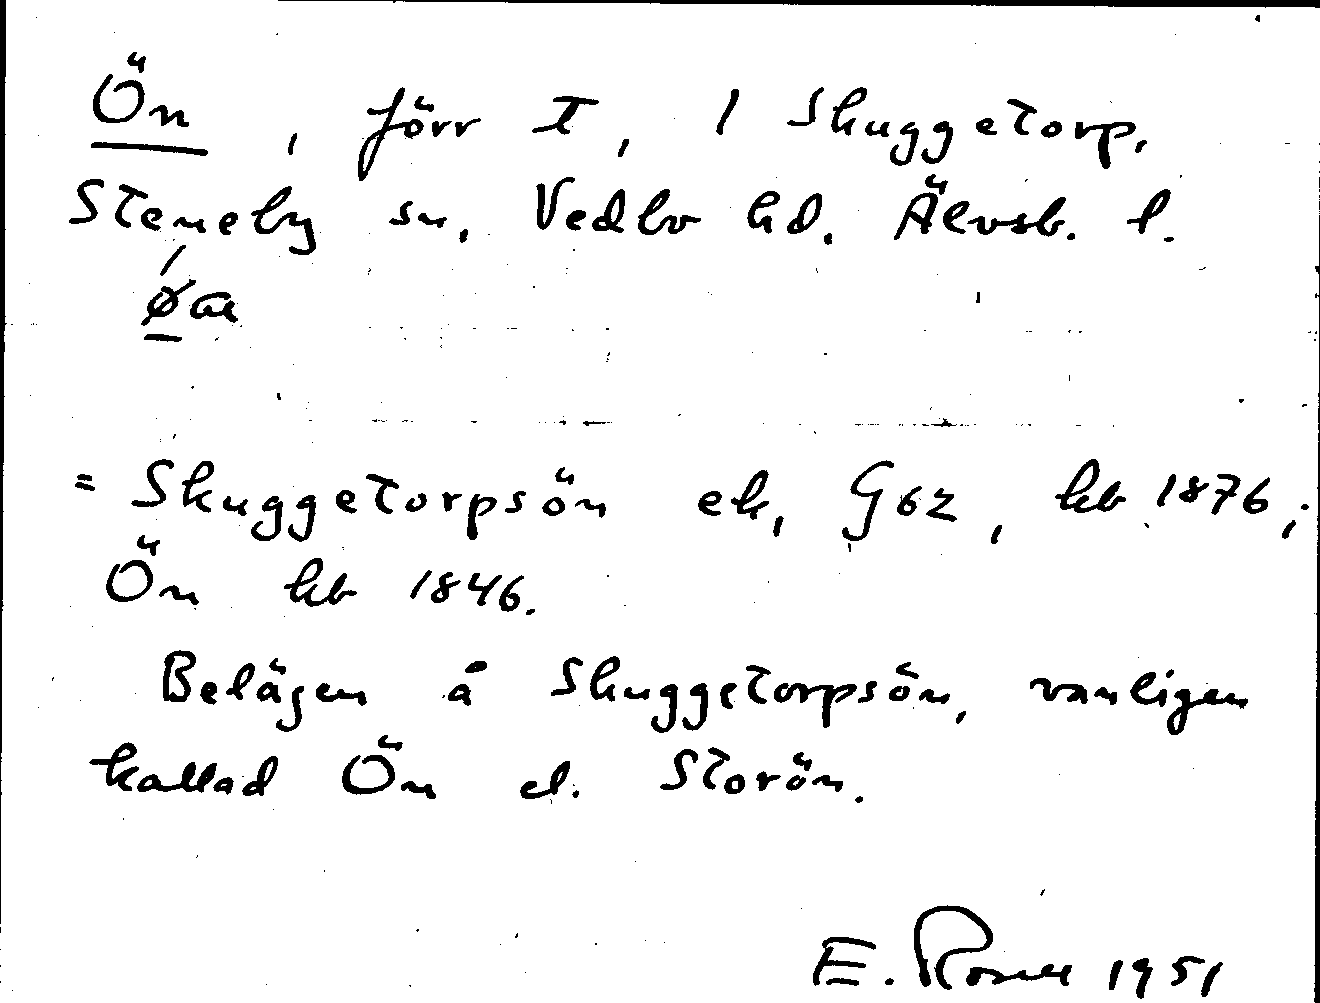 Ön, förr T, 1 Skuggetorp.
Steneby sn. Vedbo hd. Älvsb. l.
= Skuggetorpsön ek, G62, kb 1876;
Ön kb 1846.
Belägen å Skuggetorpsön, vanligen
kallad Ön el. Storön.
E. 1951